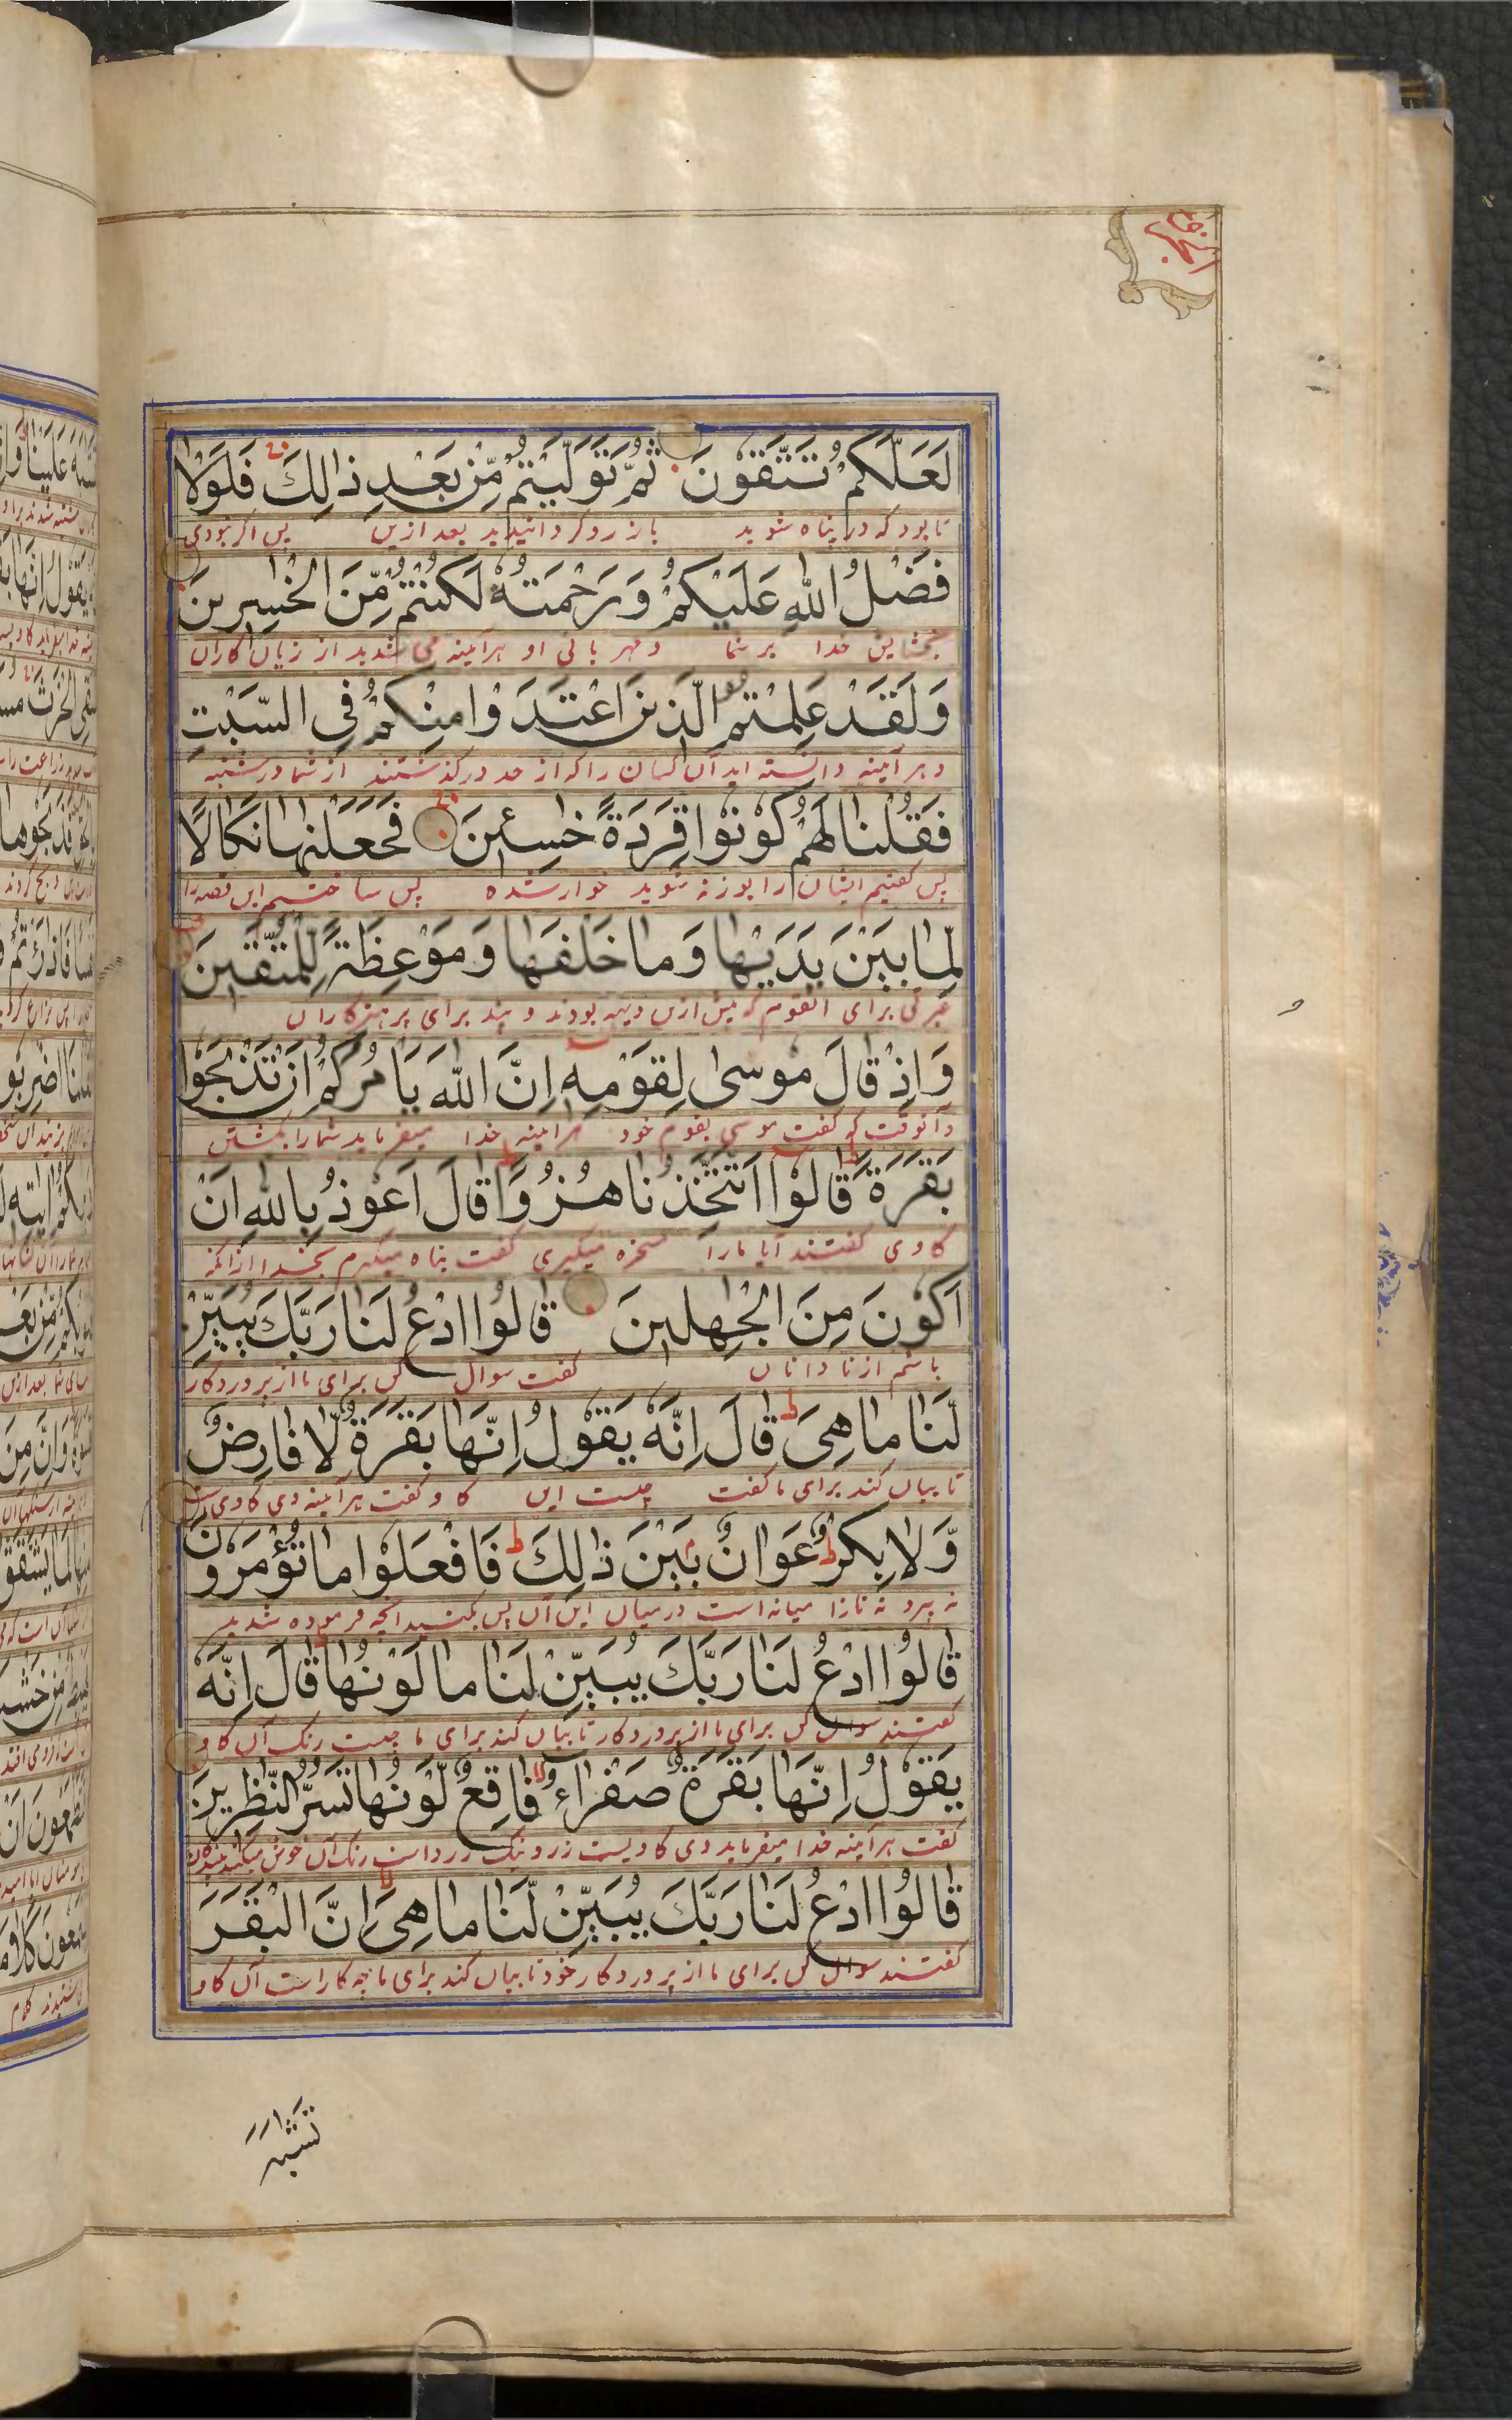 لَعَلَّكُمْ تَتَّقُوْنَ ثُمَّ تَوَلَّيْتُمْ مِّنْ بَعْدِ ذٰلِكَ فَلَوْلَا
تا بود که در پناه شوید باز رو گردانیدید بعد ازین پس اگر نبودی
فَضْلُ اللّٰهِ عَلَيْكُمْ وَرَحْمَتُهٗ لَكُنْتُمْ مِّنَ الْخٰسِرِيْنَ
بخشایش خدا بر شما و مهربانی او هرآینه می شدید از زیان کاران
وَلَقَدْ عَلِمْتُمُ الَّذِيْنَ اعْتَدَوْا مِنْكُمْ فِى السَّبْتِ
و هر آینه دانسته اید آن کسان را که از حد درگذشتند از شما در شنبه
فَقُلْنَا لَهُمْ كُوْنُوْا قِرَدَةً خٰسِئِيْنَ فَجَعَلْنٰهَا نَكَالًا
پس گفتیم ایشان را بوزنه شوید خوار شده پس ساختیم این قصه را
لِّمَا بَيْنَ يَدَيْهَا وَمَا خَلْفَهَا وَمَوْعِظَةً لِّلْمُتَّقِيْنَ
عبرتی برای آنقوم که پیش ازین دیهه بودند و پند برای پرهیزکاران
وَاِذْ قَالَ مُوْسٰى لِقَوْمِهٖ اِنَّ اللّٰهَ يَاْمُرُكُمْ اَنْ تَذْبَحُوْا
و آنوقت که گفت موسی بقوم خود هرآینه خدا میفرماید شما را بکشتن
بَقَرَةً قَالُوْا اَتَتَّخِذُنَا هُزُوًا قَالَ اَعُوْذُ بِاللّٰهِ اَنْ
گاوی گفتند آیا ما را سخره میگیری گفت پناه میگیرم بخدا از آنکه
اَكُوْنَ مِنَ الْجٰهِلِيْنَ قَالُوا ادْعُ لَنَا رَبَّكَ يُبَيِّنْ
باشم از نادانان گفت سوال کن برای ما از پروردگار
لَّنَا مَا هِىَ قَالَ اِنَّهٗ يَقُوْلُ اِنَّهَا بَقَرَةٌ لَّا فَارِضٌ
تا بیان کند برای ما گفت چیست این گاو گفت هرآینه وی گاوی است
وَّلَا بِكْرٌ عَوَانٌ بَيْنَ ذٰلِكَ فَافْعَلُوْا مَا تُؤْمَرُوْنَ
نه پیر و نه نازا میانه است درمیان این آن پس بکنید آنچه فرموده شدید
قَالُوا ادْعُ لَنَا رَبَّكَ يُبَيِّنْ لَّنَا مَا لَوْنُهَا قَالَ اِنَّهٗ
گفتند سوال کن برای ما از پروردگار تا بیان کند برای ما چیست رنگ آن گاو
يَقُوْلُ اِنَّهَا بَقَرَةٌ صَفْرَاءُ فَاقِعٌ لَّوْنُهَا تَسُرُّ النّٰظِرِيْنَ
گفت هرآینه خدا میفرماید وی گاویست زرد نیک زرد است رنگ آن خوش میکند
قَالُوا ادْعُ لَنَا رَبَّكَ يُبَيِّنْ لَّنَا مَا هِىَ اِنَّ الْبَقَرَ
گفتند سوال کن برای ما از پروردگار خود تا بیان کند برای ما چه کار است آن گاو
تَشٰبَهَ